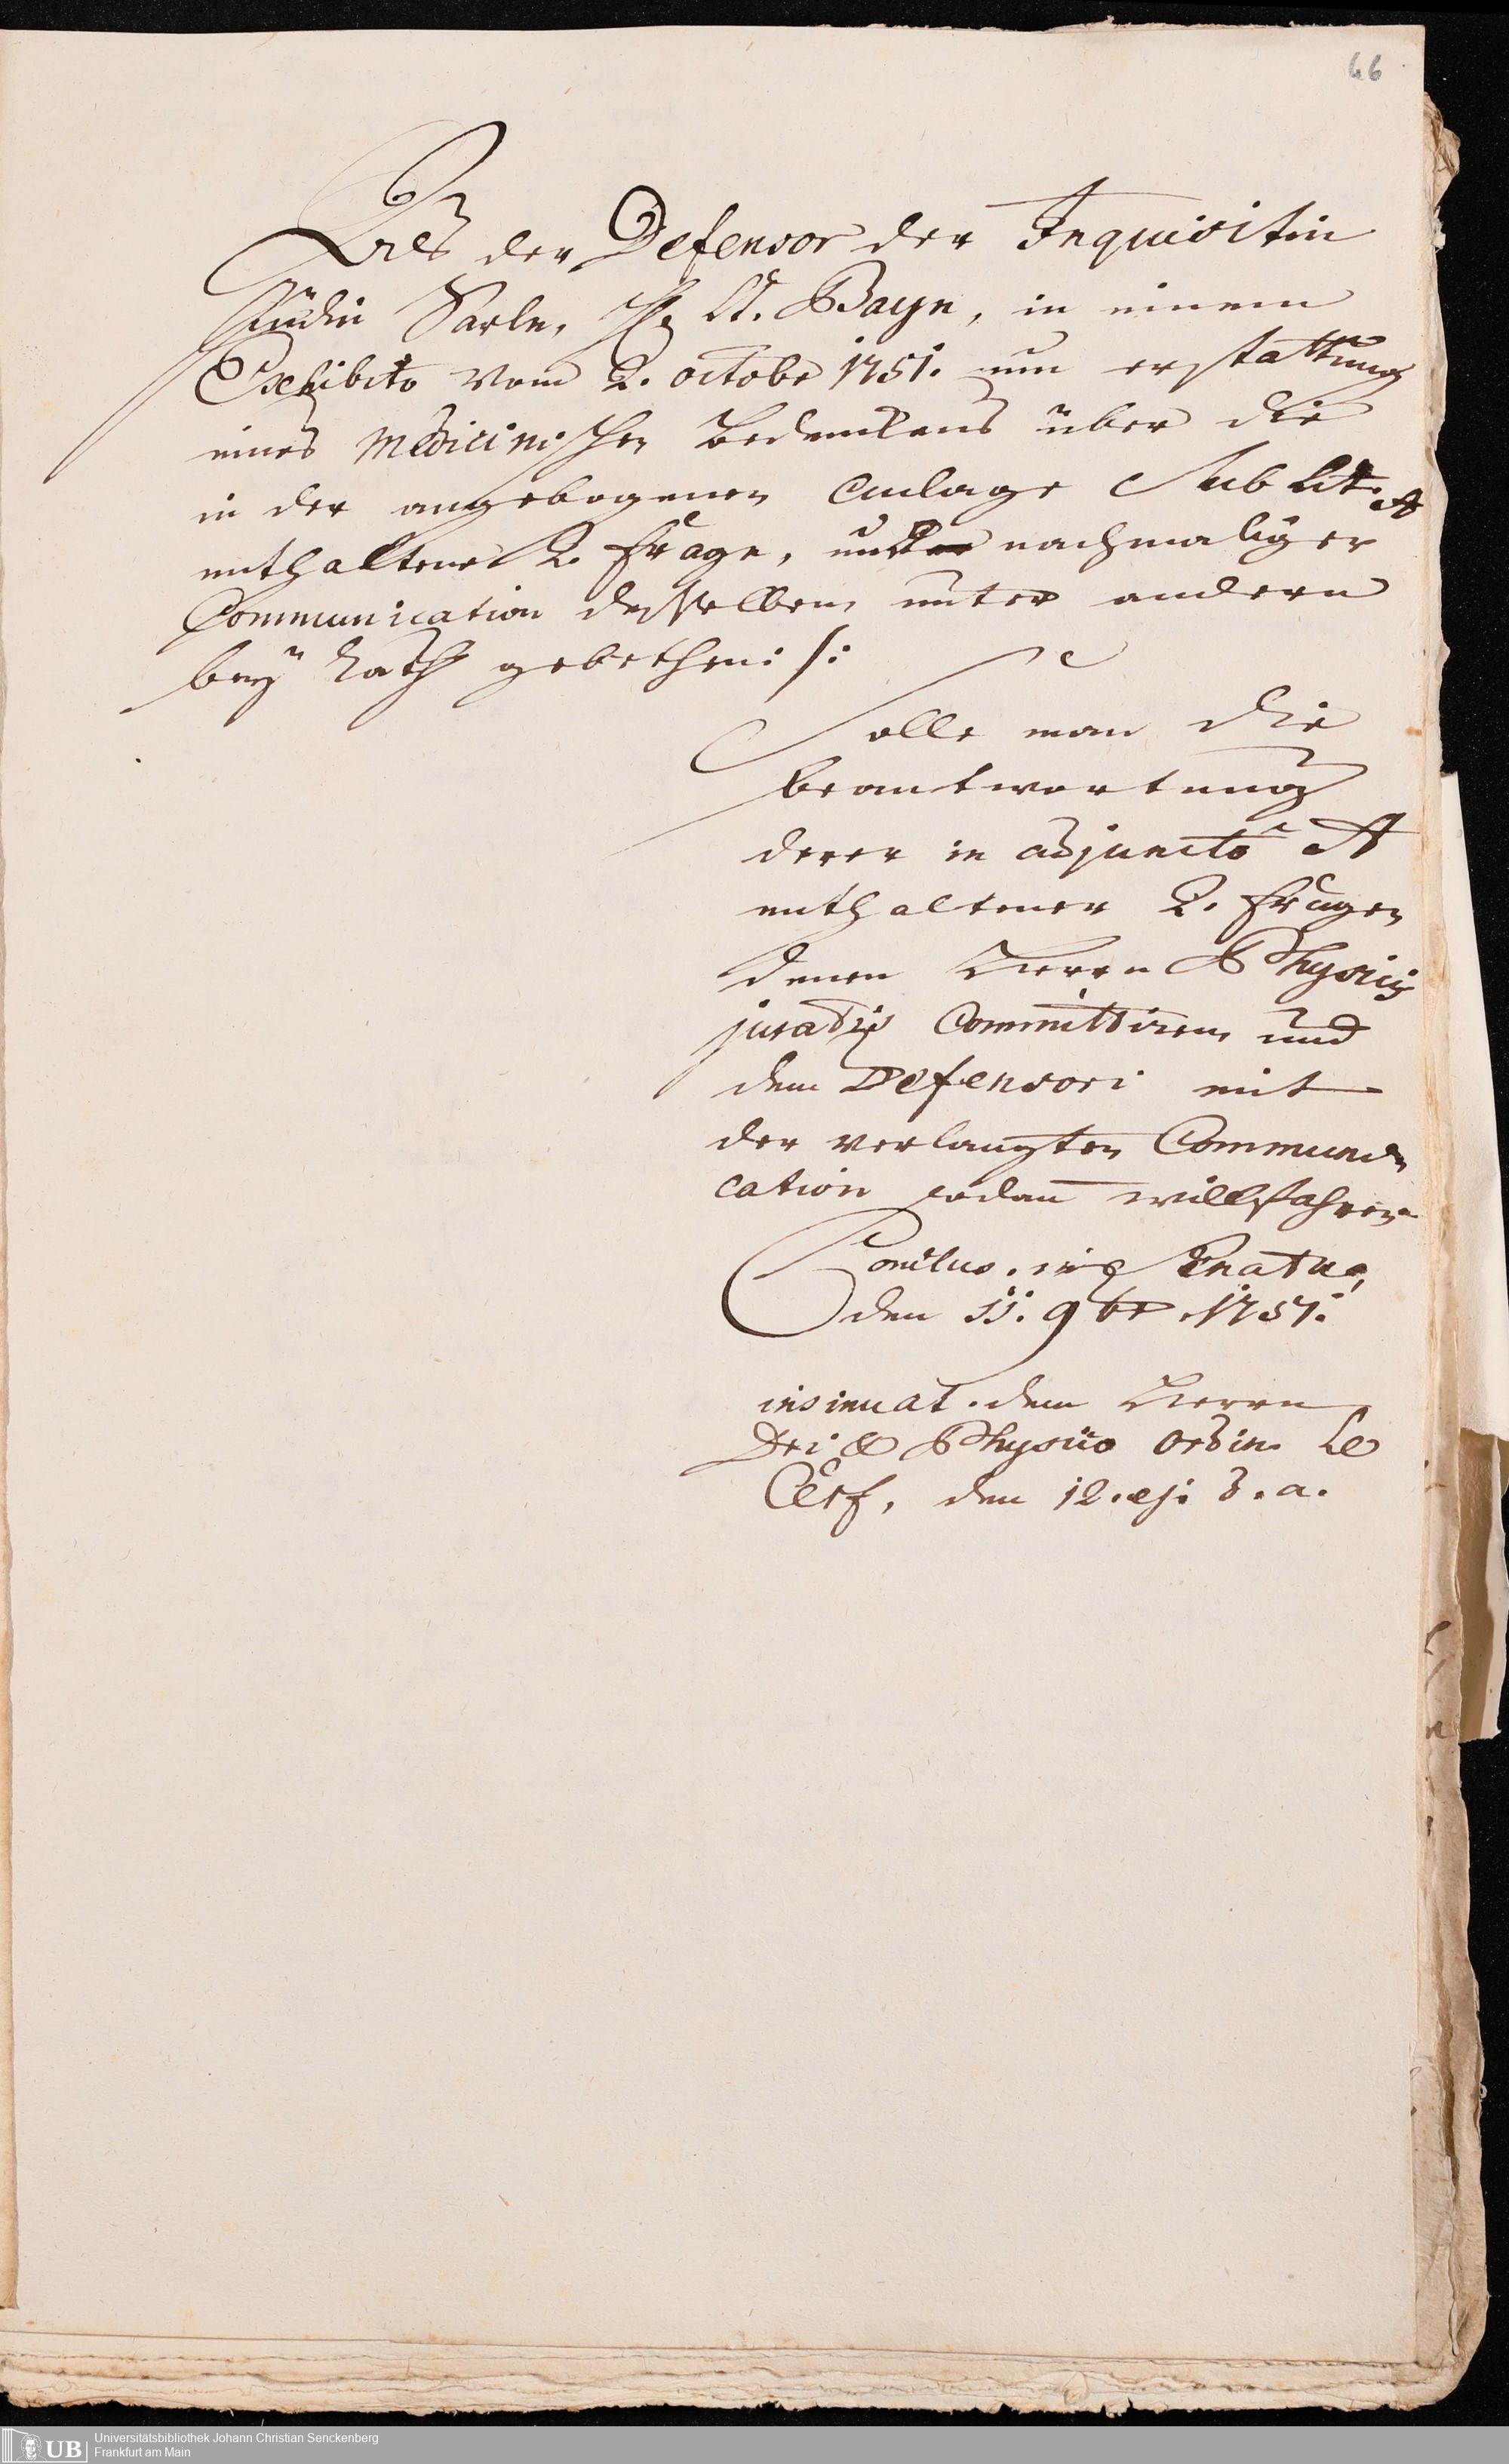 66
Als der Defensor der Inquisitin
Jüdin Sarle, H. Lt. Bayn, in einem
Exhibito vom 2. octobr 1751. um erstattung
eines Medicinischen Bedenckens über die
in der angebogenen Anlage Sub Lit. A
enthaltene 2. Frage, und nachmaliger
Communication desselben, unter andern
bey Rath gebethen: /:
Solle man die
beantwortung
derer in adjuncto A
enthaltener 2. Fragen
denen Herren Physicis
juratis Committiren, und
dem Defensori mit
der verlangten Communi-
cation sodann willfahren.
Conclus. in Senatu,
den 11. 9br. 1751.
insinuat. dem Herrn
Dri & Physico ordin. Le
Cerf, den 12. ej. & a.
Universitätsbibliothek Johann Christian Senckenberg
UB Frankfurt am Main